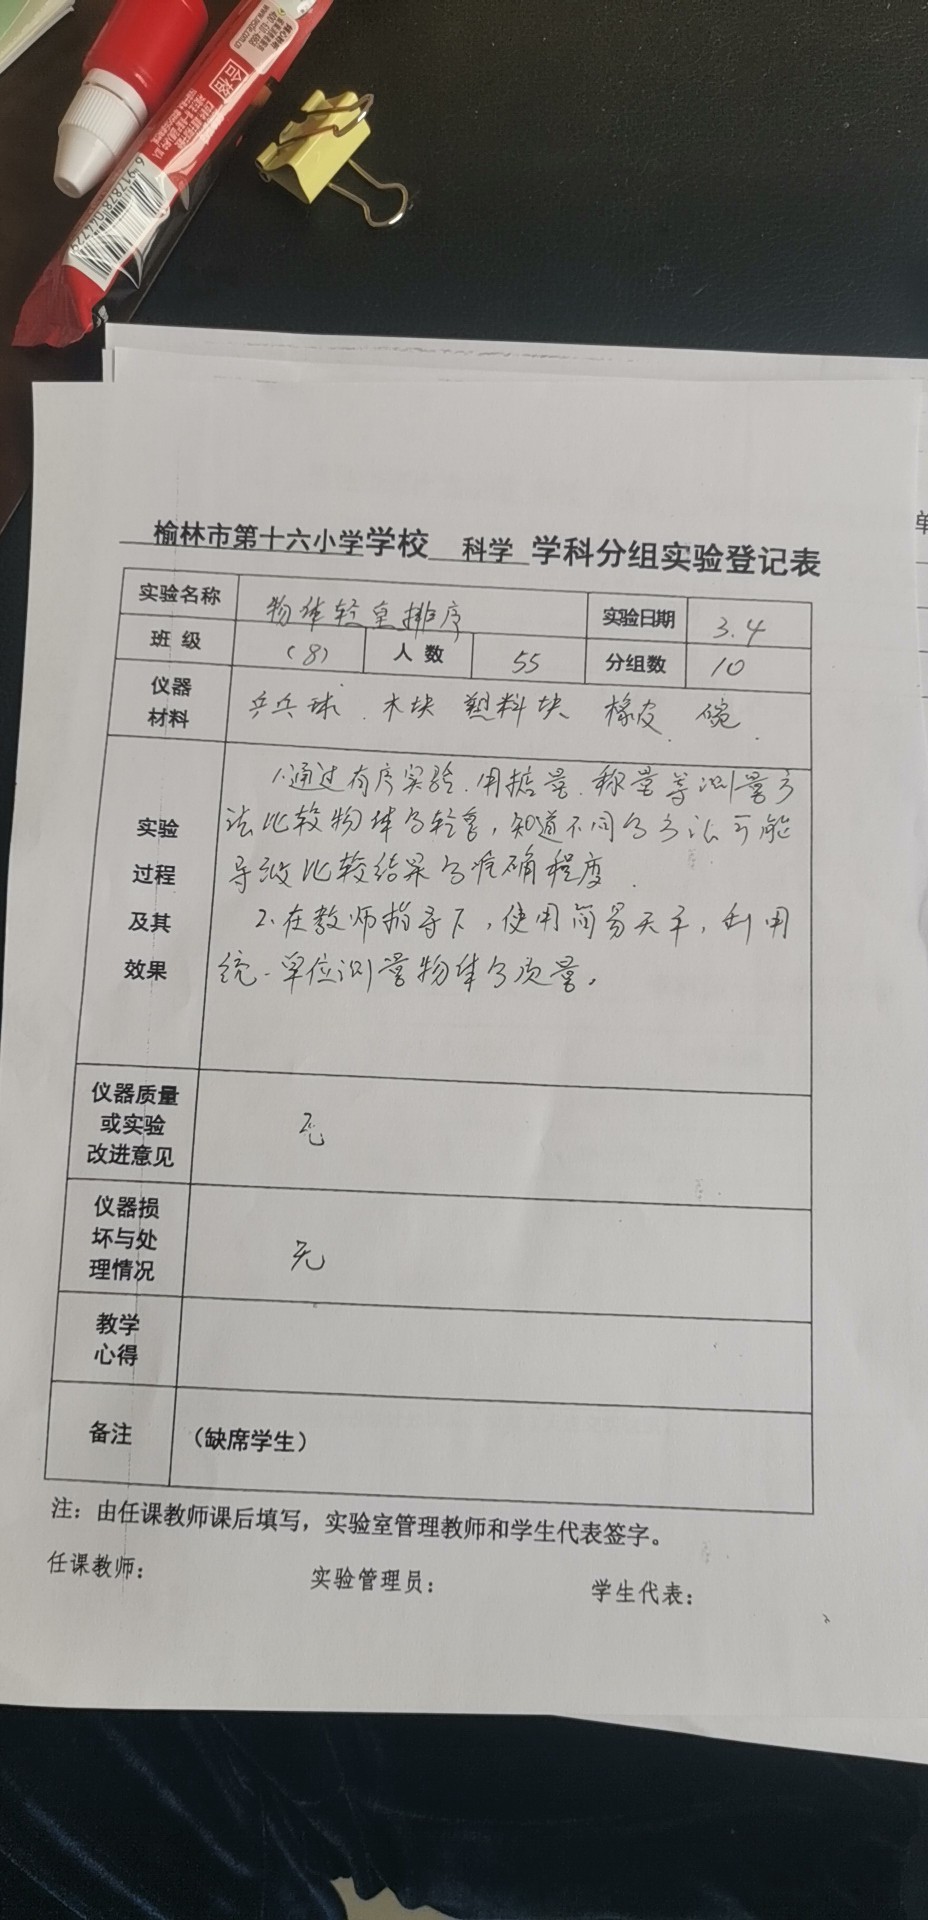 合格
6 917878 044729
榆林市第十六小学学校 科学 学科分组实验登记表
实验名称 物体轻重排序 实验日期 3.4
班级 （8） 人数 55 分组数 10
仪器材料 乒乓球 木块 塑料块 橡皮 碗
实验过程及其效果
1.通过有序实验.用掂量.称量等测量方
法比较物体的轻重，知道不同的方法可能
导致比较结果的准确程度.
2.在教师指导下，使用简易天平，利用
统一单位测量物体的质量。
仪器质量或实验改进意见 无
仪器损坏与处理情况 无
教学心得
备注 （缺席学生）
注：由任课教师课后填写，实验室管理教师和学生代表签字。
任课教师： 实验管理员： 学生代表：
单